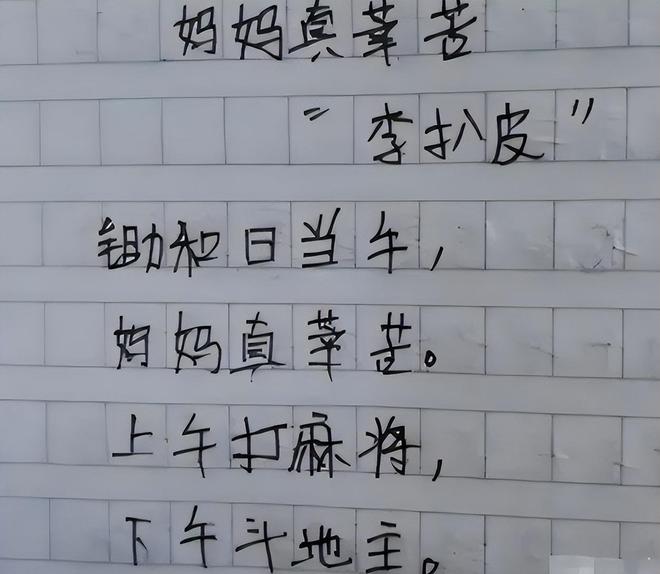 妈妈真莘苦
“李扒皮”
锄和日当午，
妈妈真莘苦。
上午打麻将，
下午斗地主。